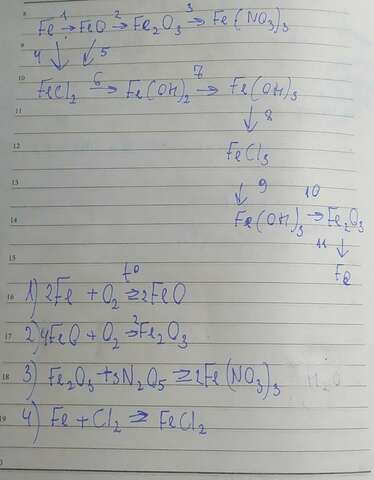 8
Fe →1 FeO →2 Fe2O3 →3 Fe(NO3)3
9
4 ↓ ↙ 5
10
FeCl2 →6 Fe(OH)2 →7 Fe(OH)3
11
↓ 8
12
FeCl3
13
↓ 9 10
14
Fe(OH)3 → Fe2O3
11 ↓
15
Fe
t°
16 1) 2Fe + O2 → 2FeO
17 2) 4FeO + O2 → 2Fe2O3
18 3) Fe2O3 + 3N2O5 → 2Fe(NO3)3
19 4) Fe + Cl2 → FeCl2